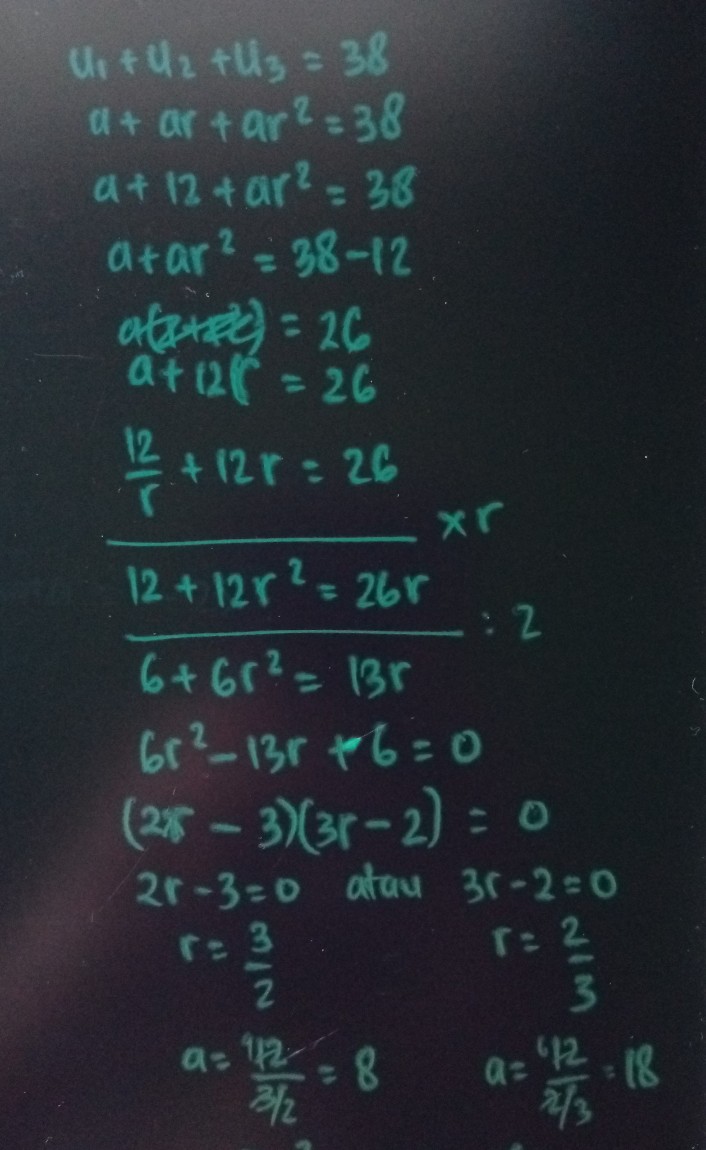 u₁ + u₂ + u₃ = 38
a + ar + ar² = 38
a + 12 + ar² = 38
a + ar² = 38 - 12
= 26
a + 12r = 26
12/r + 12r = 26
× r
12 + 12r² = 26r
: 2
6 + 6r² = 13r
6r² - 13r + 6 = 0
(2r - 3)(3r - 2) = 0
2r - 3 = 0 atau 3r - 2 = 0
r = 3/2 r = 2/3
a = 12/(3/2) = 8 a = 12/(2/3) = 18